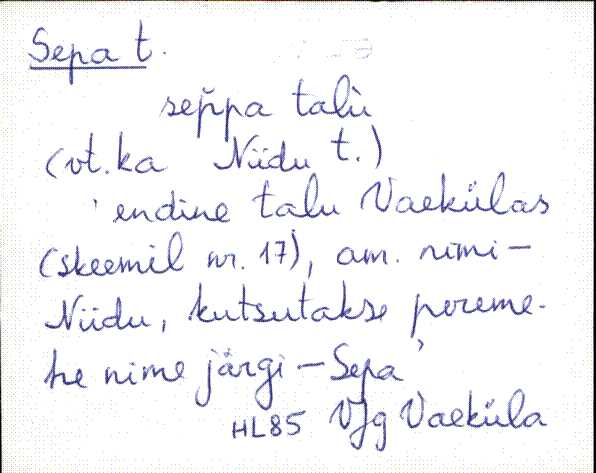 Sepa t.
sep̌pa talù
(vt. ka Niidu t.)
'endine talu Vaekülas
(skeemil nr. 17), am. nimi –
Niidu, kutsutakse pereme-
he nime järgi – Sepa'
HL85 VJg Vaeküla